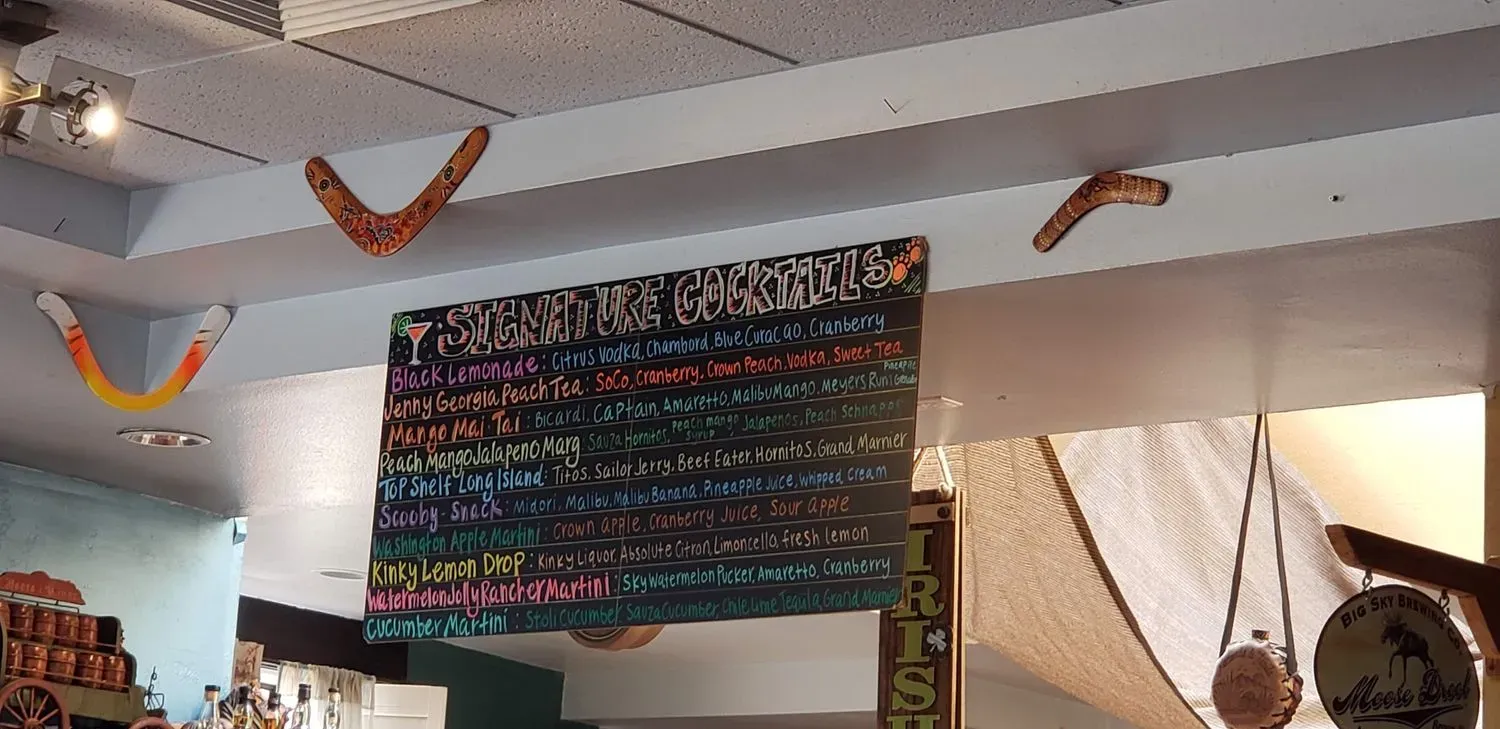 SIGNATURE COCKTAILS
Black Lemonade: Citrus Vodka, Chambord, Blue Curacao, Cranberry
Jenny Georgia Peach Tea: SoCo, Cranberry, Crown Peach, Vodka, Sweet Tea
Mango Mai-Tai: Bicardi, Captain, Amaretto, Malibu Mango, Meyers Rum Pineapple
Peach Mango Jalapeno Marg: Sauza Hornitos, Peach mango syrup, Jalapenos, Peach Schnapps
Top Shelf Long Island: Titos, Sailor Jerry, Beef Eater, Hornitos, Grand Marnier
Scooby-Snack: Midori, Malibu, Malibu Banana, Pineapple Juice, Whipped Cream
Washington Apple Martini: Crown Apple, Cranberry Juice, Sour Apple
Kinky Lemon Drop: Kinky Liquor, Absolute Citron, Limoncello, fresh lemon
Watermelon Jolly Rancher Martini: Sky Watermelon Pucker, Amaretto, Cranberry
Cucumber Martini: Stoli Cucumber, Sauza Cucumber, Chile Lime Tequila, Grand Marnier
IRISH
BIG SKY BREWING CO
Moose Drool